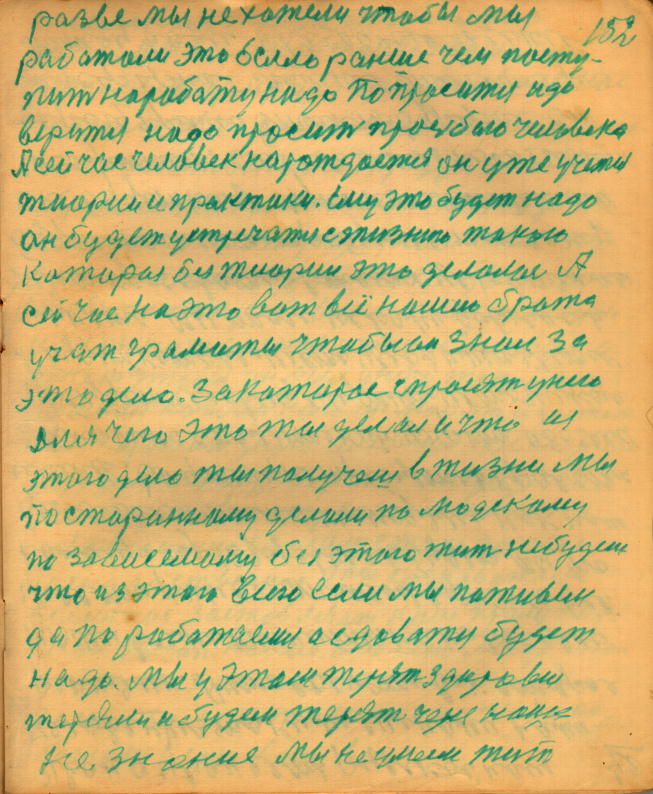 разве мы не хотели чтобы мы
152
работали это было раньше чем посту-
пит на работу надо попросится и до
верится надо просит просьбою человека
А сейчас человек нарождается он уже учится
тиории и практики. Ему это будет надо
он будет устречатся с жизнию такою
которая без тиории это делалос А
сейчас на это вот всё нашио брата
учат грамоты чтобы он знал за
это дело. За которое спросят у него
для чего это ты делал и что из
этого дело ты получеш в жизни мы
по старинному делали по людскому
по зависемому без этого жит небудеш
что из этого всего если мы поживем
да поработаем а сдоватся будет
надо. Мы у этом терят здоровие
теряли и будем терят через наше
не знание мы не умеем жит